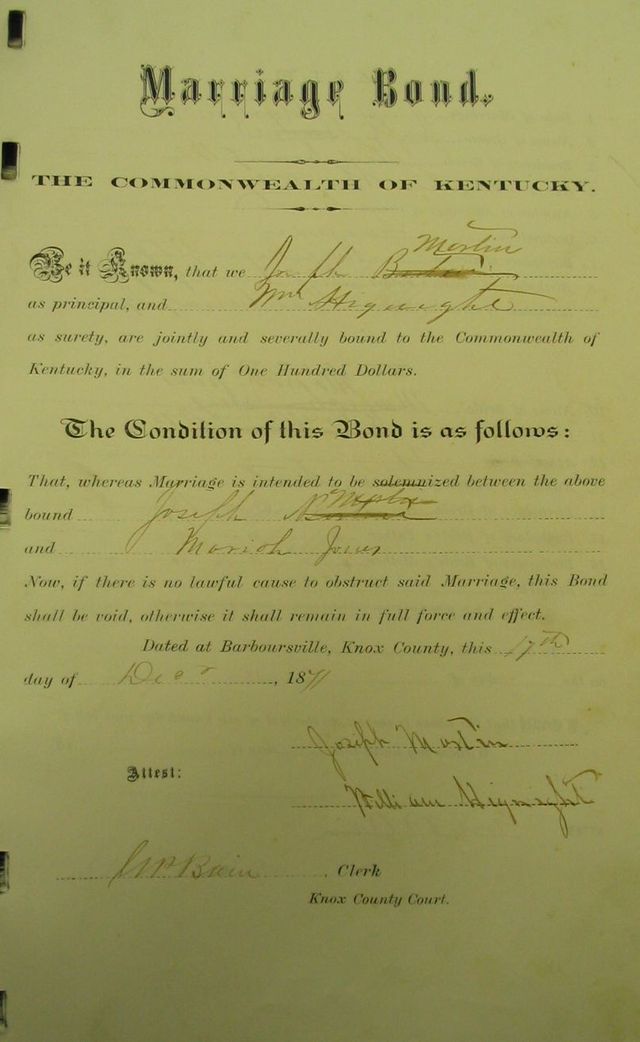 Marriage Bond.
THE COMMONWEALTH OF KENTUCKY.
Martin
Be it Known, that we Joseph
as principal, and Wm Hignight
as surety, are jointly and severally bound to the Commonwealth of
Kentucky, in the sum of One Hundred Dollars.
The Condition of this Bond is as follows:
That, whereas Marriage is intended to be solemnized between the above
Martin
bound Joseph
and Mariah Jones
Now, if there is no lawful cause to obstruct said Marriage, this Bond
shall be void, otherwise it shall remain in full force and effect.
Dated at Barboursville, Knox County, this 17th
day of Decr, 1871
Joseph Martin
Attest:
William Hignight
Clerk
Knox County Court.